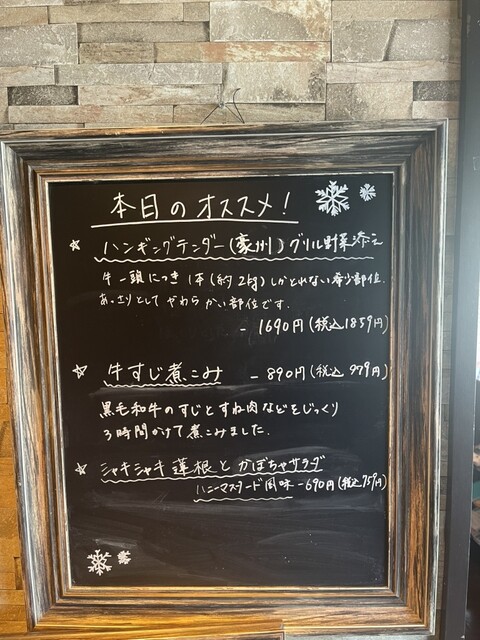 本日のオススメ!
ハンギングテンダー(豪州)グリル野菜添え
牛一頭につき1本(約2kg)しかとれない希少部位.
あっさりとしてやわらかい部位です.
- 1690円(税込1859円)
牛すじ煮こみ - 890円(税込979円)
黒毛和牛のすじとすね肉などをじっくり
3時間かけて煮こみました.
シャキシャキ蓮根とかぼちゃサラダ
ハニーマスタード風味 - 690円(税込759円)